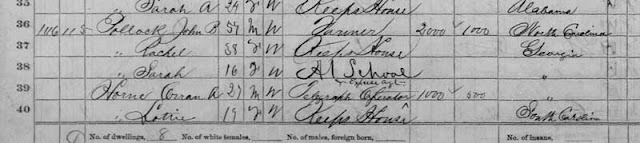 35 " Sarah A 24 F W Keeps House Alabama
36 116 115 Pollock John B 57 M W Farmer 2000 1000 North Carolina
37 " Rachel 38 F W Keeps House Georgia
38 " Sarah 16 F W At School "
39 Horne Orran A 27 M W & Express agt Telegraph Operator 1000 500 "
40 " Lottie 19 F W Keeps House South Carolina
No. of dwellings, 8 No. of white females, No. of males, foreign born, No. of insane,